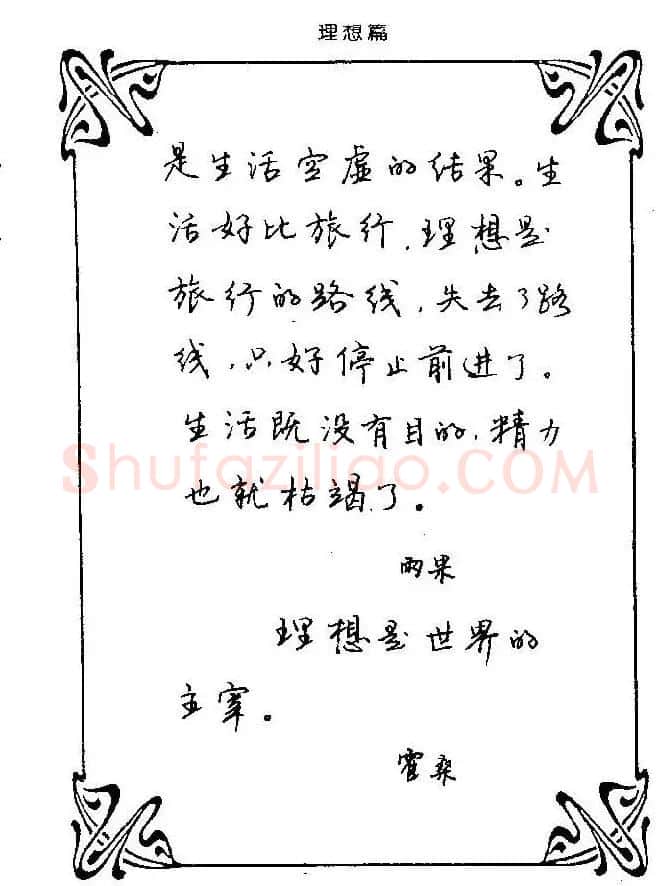 理想篇
是生活空虚的结果。生
活好比旅行，理想是
旅行的路线，失去了路
线，只好停止前进了。
生活既没有目的，精力
也就枯竭了。
Shufaziliao.COM
雨果
理想是世界的
主宰。
霍桑